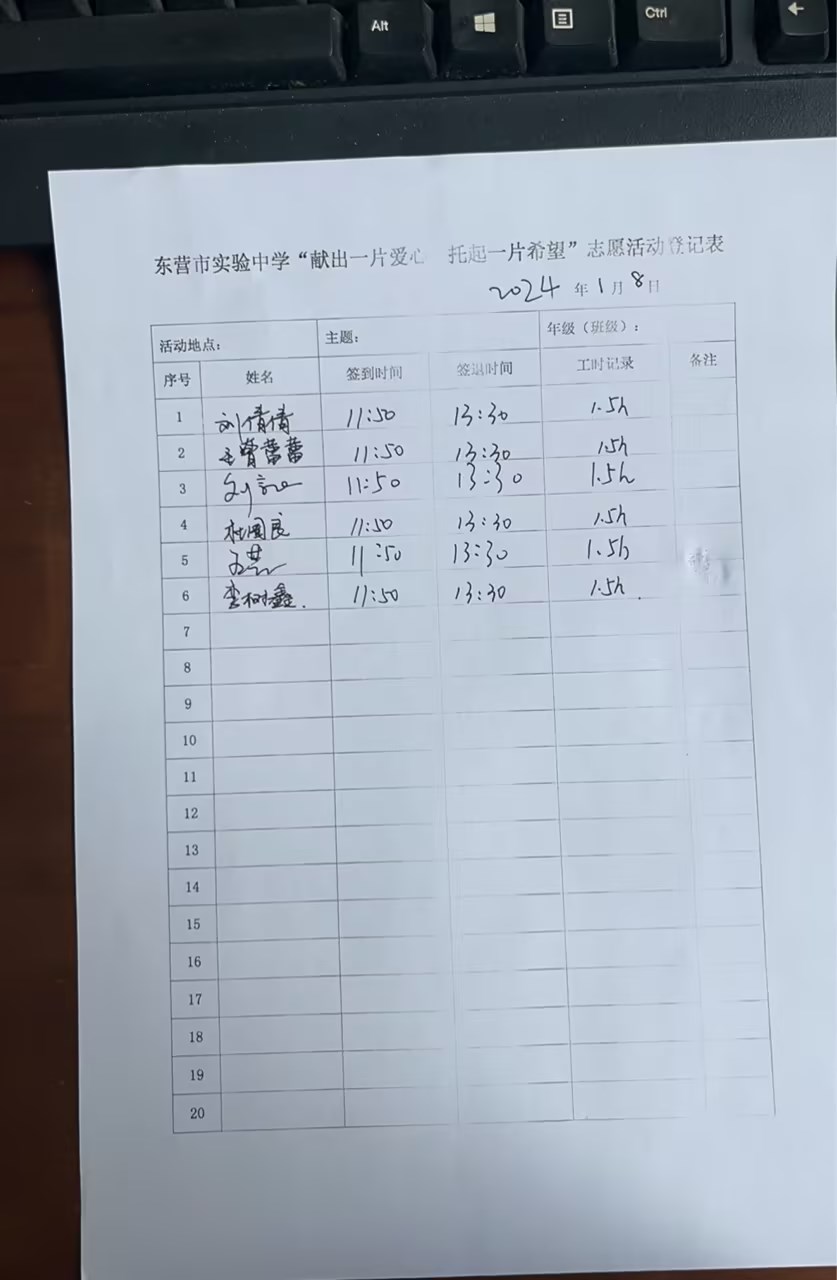 Alt
Ctrl
东营市实验中学“献出一片爱心 托起一片希望”志愿活动登记表
2024 年 1 月 8 日
活动地点: 主题: 年级（班级）:
序号 姓名 签到时间 签退时间 工时记录 备注
1 刘倩倩 11:50 13:30 1.5h
2 11:50 13:30 1.5h
3 刘 11:50 13:30 1.5h
4 杜国良 11:50 13:30 1.5h
5 11:50 13:30 1.5h
6 李树鑫. 11:50 13:30 1.5h.
7
8
9
10
11
12
13
14
15
16
17
18
19
20